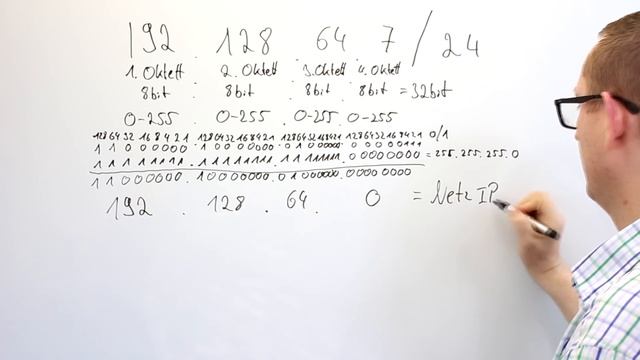 192 . 128 . 64 . 7 / 24
1. Oktett . 2. Oktett . 3. Oktett . 4. Oktett
8bit . 8bit . 8bit . 8bit = 32bit
0-255 . 0-255 . 0-255 . 0-255
128 64 32 16 8 4 2 1 128 64 32 16 8 4 2 1 128 64 32 16 8 4 2 1 128 64 32 16 8 4 2 1 0/1
1 1 0 0 0 0 0 0 . 1 0 0 0 0 0 0 0 . 0 1 0 0 0 0 0 0 . 0 0 0 0 0 1 1 1
1 1 1 1 1 1 1 1 . 1 1 1 1 1 1 1 1 . 1 1 1 1 1 1 1 1 . 0 0 0 0 0 0 0 0 = 255.255.255.0
1 1 0 0 0 0 0 0 . 1 0 0 0 0 0 0 0 . 0 1 0 0 0 0 0 0 . 0 0 0 0 0 0 0 0
192 . 128 . 64 . 0 = Netz IP